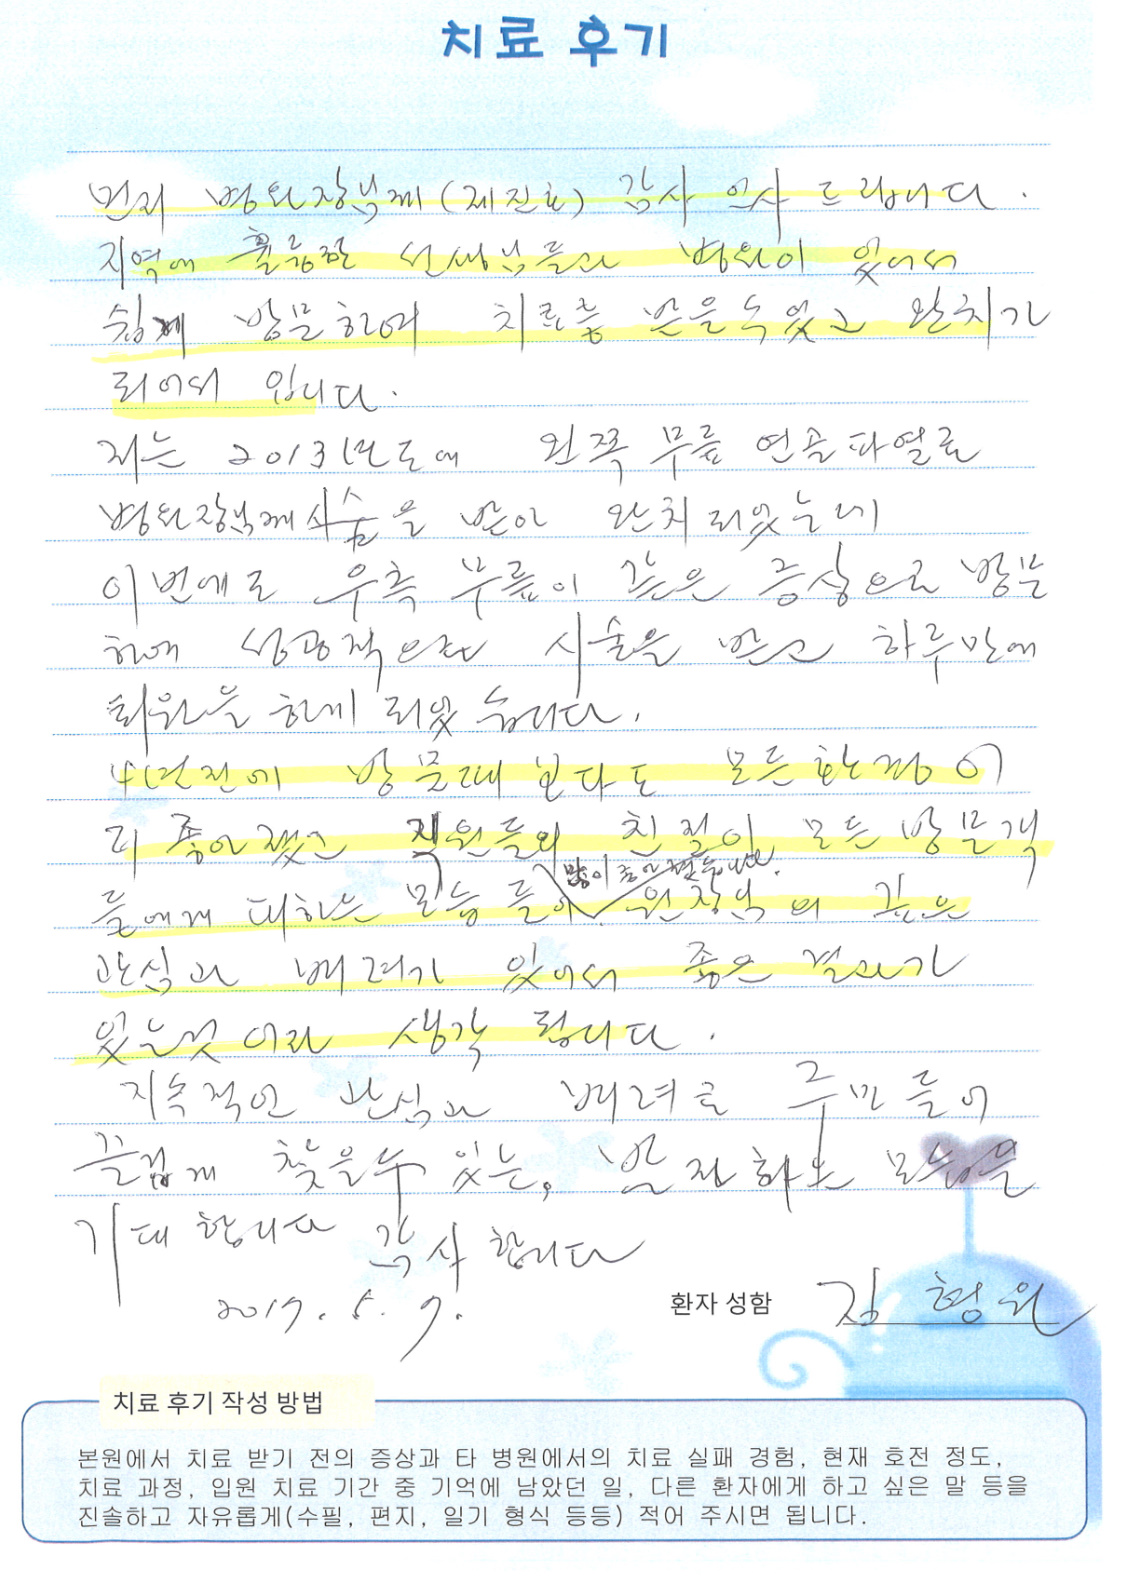 치료 후기
먼저 병원장님께(제진호) 감사 인사 드립니다.
지역에 훌륭한 선생님들과 병원이 있어서
쉽게 방문하여 치료를 받을수 있고 완치가
되어서 입니다.
저는 2013년도에 왼쪽 무릎 연골파열로
병원장님께 시술을 받아 완치 되었는데
이번에도 우측 무릎이 같은 증상으로 방문
하여 성공적으로 시술을 받고 하루만에
퇴원을 하게 되었습니다.
4년전에 방문때 보다도 모든환경이
더 좋아졌고 직원들의 친절이 모든 방문객
많이 좋아졌습니다.
들에게 대하는 모습들이 원장님의 깊은
관심과 배려가 있어서 좋은 결과가
있는것이라 생각 됩니다.
지속적인 관심과 배려로 주민들이
즐겁게 찾을수 있는, 발전하는 모습을
기대합니다 감사합니다
2017. 5. 9.
환자 성함 김형원
치료 후기 작성 방법
본원에서 치료 받기 전의 증상과 타 병원에서의 치료 실패 경험, 현재 호전 정도,
치료 과정, 입원 치료 기간 중 기억에 남았던 일, 다른 환자에게 하고 싶은 말 등을
진솔하고 자유롭게(수필, 편지, 일기 형식 등등) 적어 주시면 됩니다.